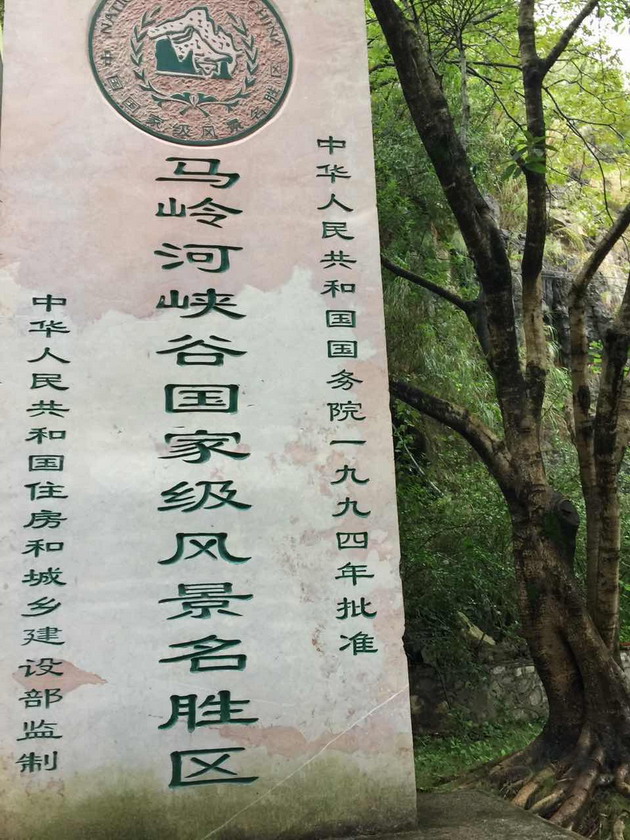 NATIONAL
CHINA
中国国家级风景名胜区
中华人民共和国国务院一九九四年批准
马岭河峡谷国家级风景名胜区
中华人民共和国住房和城乡建设部监制